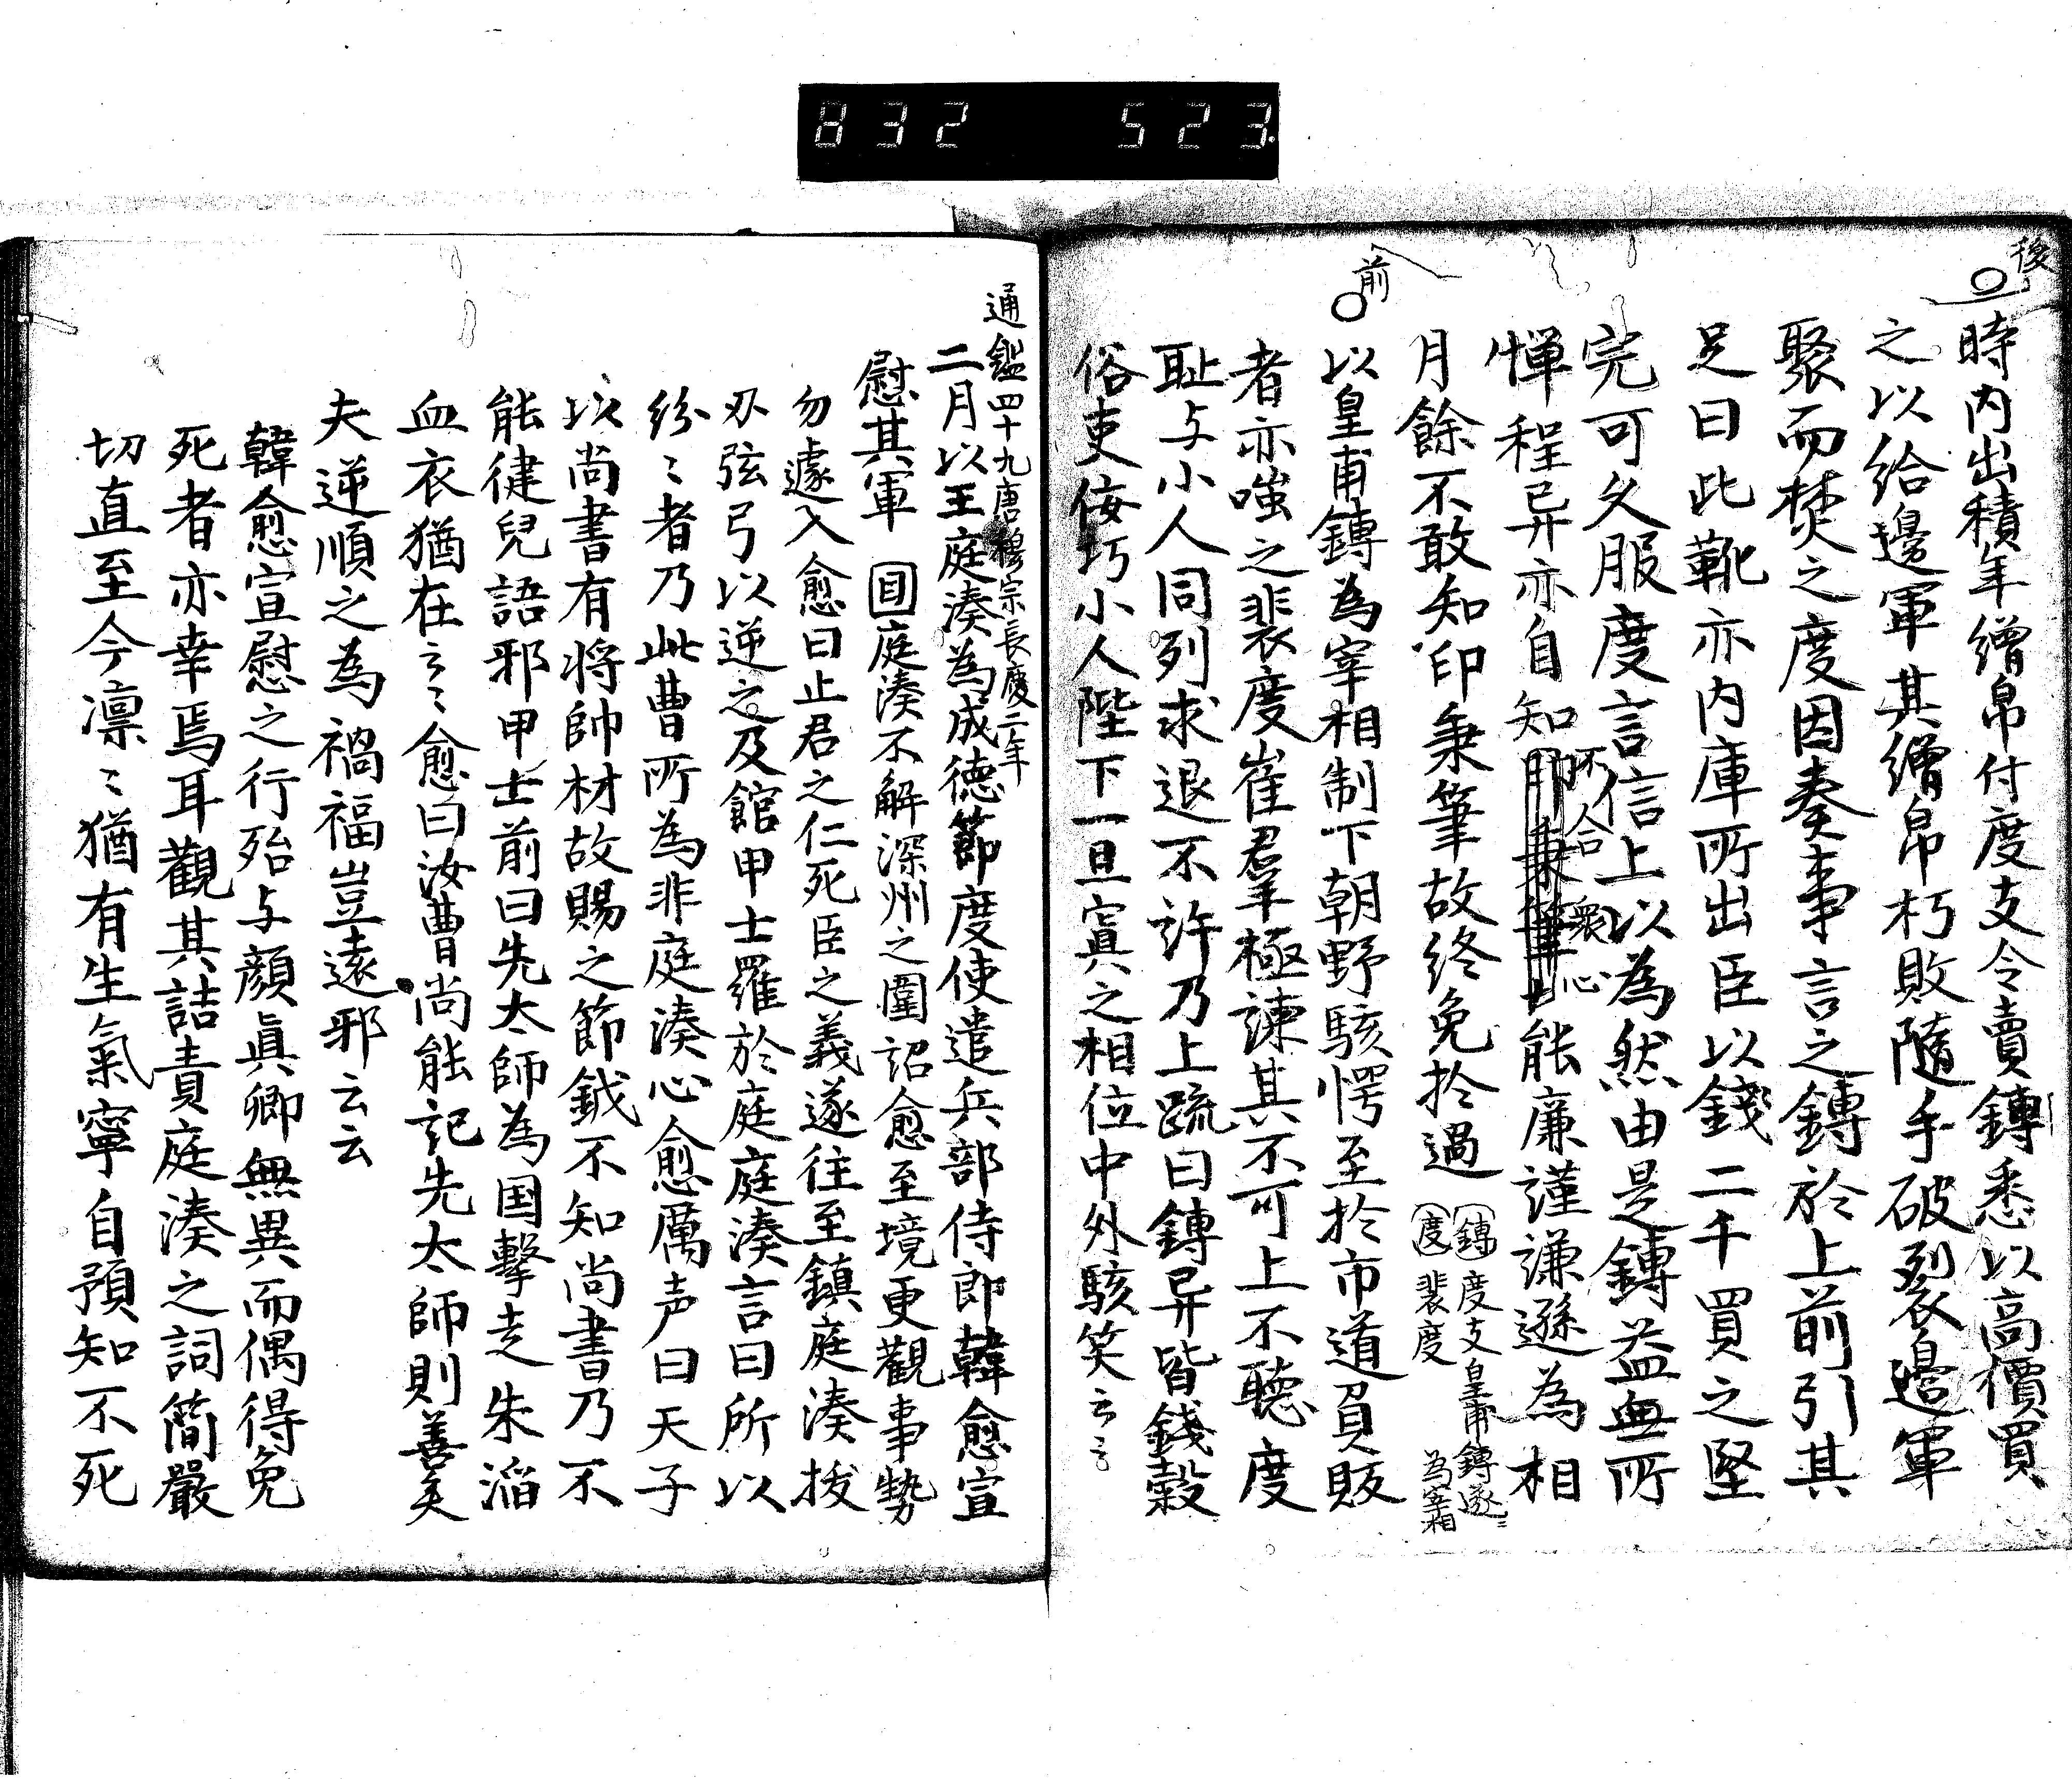 832 523
後
○時内出積年繒帛付度支令賣鏄悉以高價買
之以給邊軍其繒帛朽敗隨手破裂邊軍
聚而焚之度因奏事言之鏄於上前引其
足曰此靴亦内庫所出臣以錢二千買之堅
完可久服度言信上以為然由是鏄益無所
憚程异亦自知不合衆心能廉謹謙遜為相
月餘不敢知印秉筆故終免扵過 鏄度支皇甫鏄遂為宰相 度裴度
前
○以皇甫鏄為宰相制下朝野駭愕至扵市道負販
者亦嗤之裴度崔羣極諫其不可上不聽度
耻与小人同列求退不許乃上疏曰鏄异皆錢穀
俗吏侫巧小人陛下一旦寘之相位中外駭笑云々
通鑑四十九唐穆宗長慶二年
二月以王庭湊為成德節度使遣兵部侍郎韓愈宣
慰其軍 目庭湊不解深州之圍詔愈至境更觀事勢
勿遽入愈曰止君之仁死臣之義遂往至鎮庭湊拔
刃弦弓以逆之及館甲士羅於庭庭湊言曰所以
紛々者乃此曹所為非庭湊心愈厲声曰天子
以尚書有将帥材故賜之節鉞不知尚書乃不
能健兒語邪甲士前曰先太師為国擊走朱滔
血衣猶在云々愈曰汝曹尚能記先太師則善矣
夫逆順之為禍福豈遠邪云云
韓愈宣慰之行殆与顔眞卿無異而偶得免
死者亦幸焉耳觀其詰責庭湊之詞簡嚴
切直至今凛々猶有生氣寧自預知不死